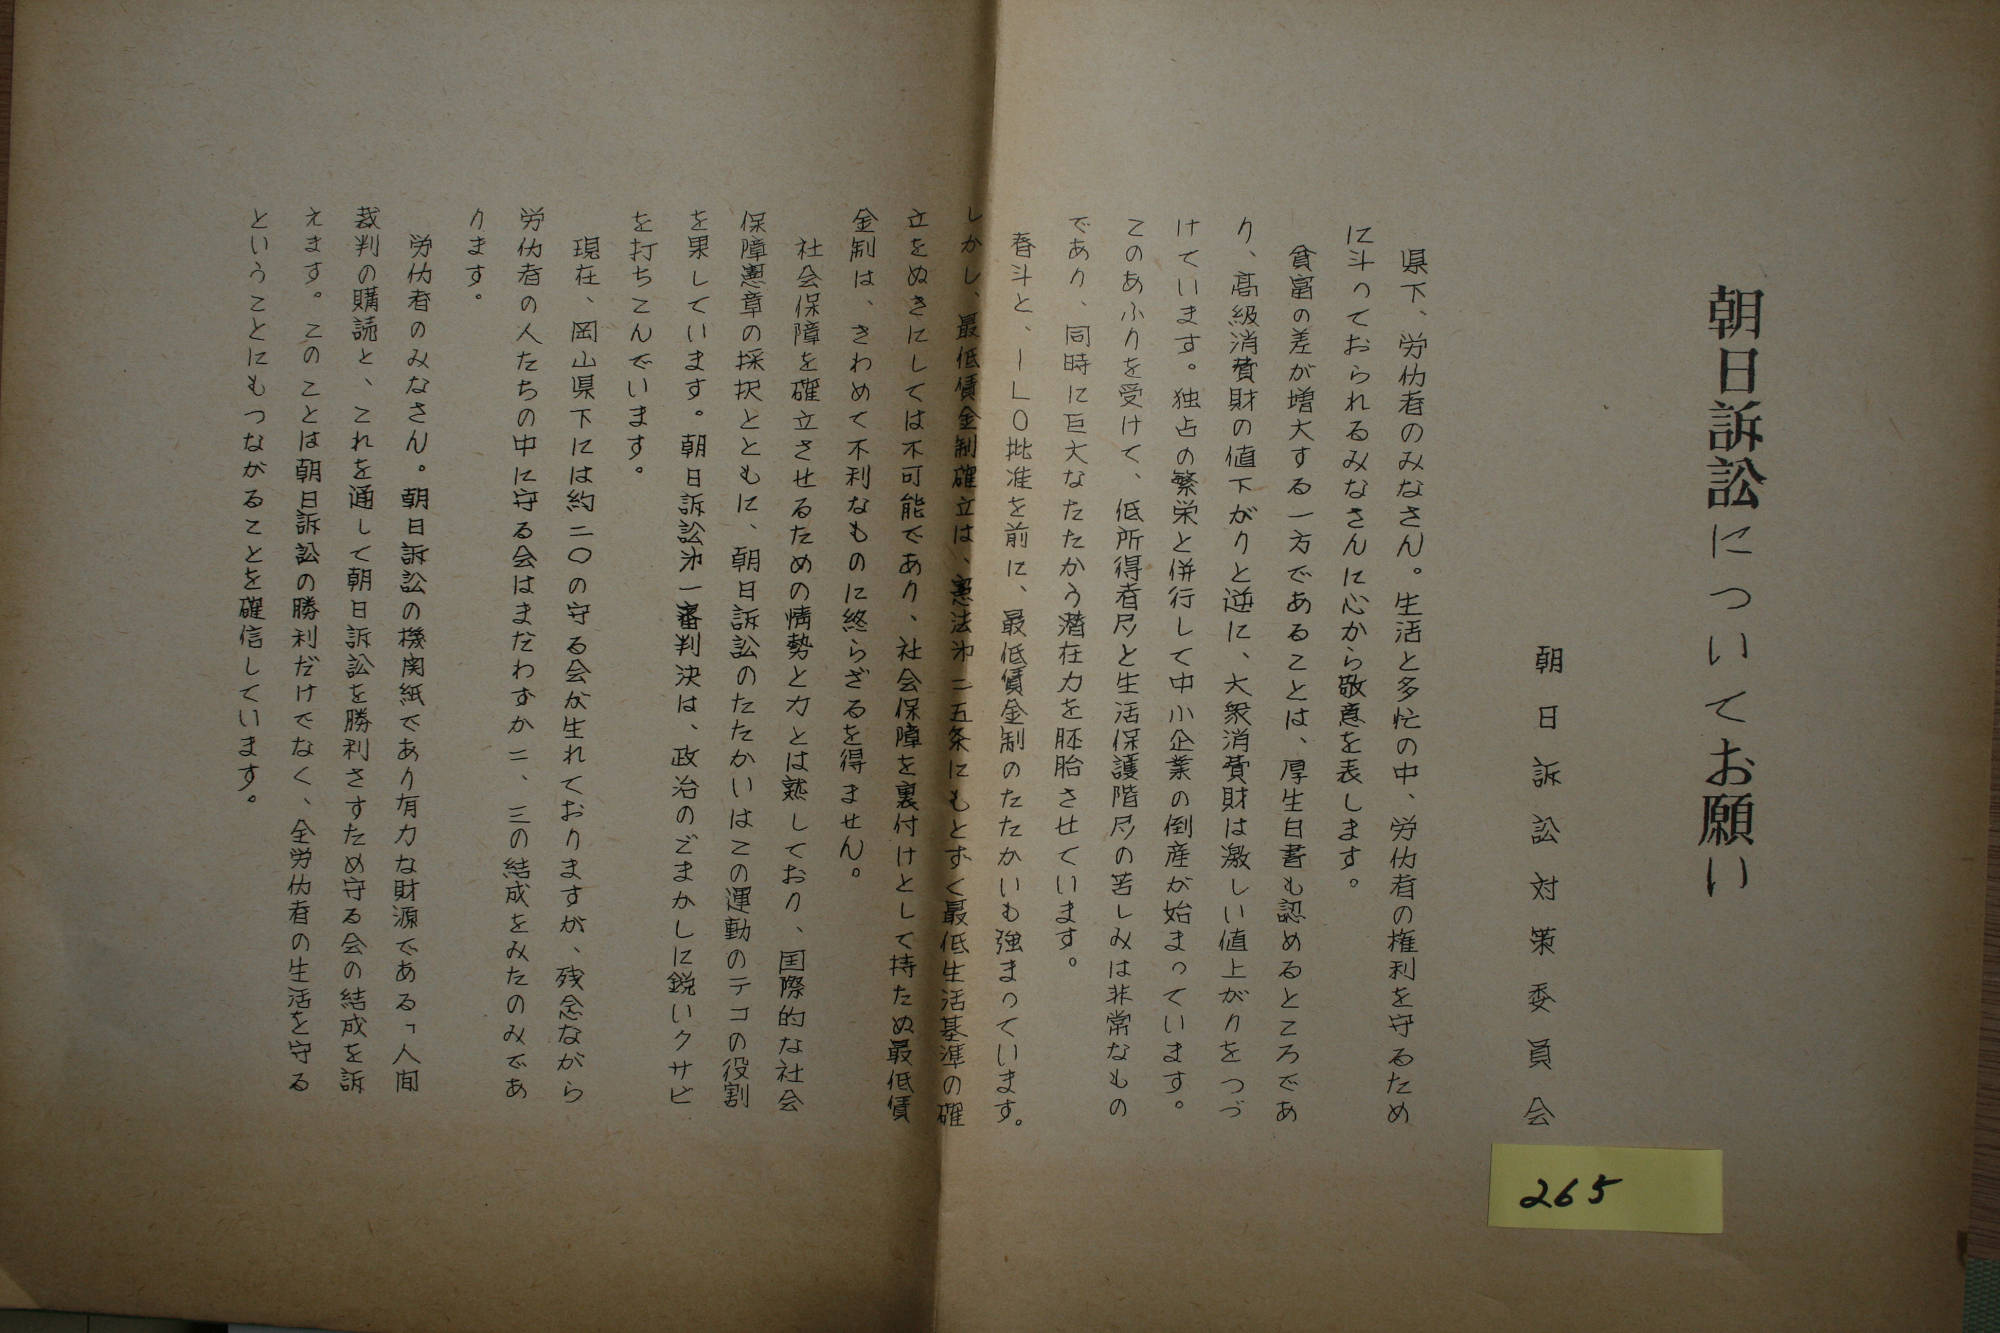 朝日訴訟についてお願い
朝日訴訟対策委員会
県下、労仂者のみなさん。生活と多忙の中、労仂者の権利を守るため
に斗っておられるみなさんに心から敬意を表します。
貧富の差が増大する一方であることは、厚生白書も認めるところであ
り、高級消費財の値下がりと逆に、大衆消費財は激しい値上がりをつづ
けています。独占の繁栄と併行して中小企業の倒産が始まっています。
このあふりを受けて、低所得者層と生活保護階層の苦しみは非常なもの
であり、同時に巨大なたたかう潜在力を胚胎させています。
春斗と、ILO批准を前に、最低賃金制のたたかいも強まっています。
しかし、最低賃金制確立は、憲法第二五条にもとずく最低生活基準の確
立をぬきにしては不可能であり、社会保障を裏付けとして持たぬ最低賃
金制は、きわめて不利なものに終らざるを得ません。
社会保障を確立させるための情勢と力とは熟しており、国際的な社会
保障憲章の採択とともに、朝日訴訟のたたかいはこの運動のテコの役割
を果しています。朝日訴訟第一審判決は、政治のごまかしに鋭いクサビ
を打ちこんでいます。
現在、岡山県下には約二〇の守る会が生れておりますが、残念ながら
労仂者の人たちの中に守る会はまだわずか二、三の結成をみたのみであ
ります。
労仂者のみなさん。朝日訴訟の機関紙であり有力な財源である「人間
裁判の購読と、これを通して朝日訴訟を勝利さすため守る会の結成を訴
えます。このことは朝日訴訟の勝利だけでなく、全労仂者の生活を守る
ということにもつながることを確信しています。
265